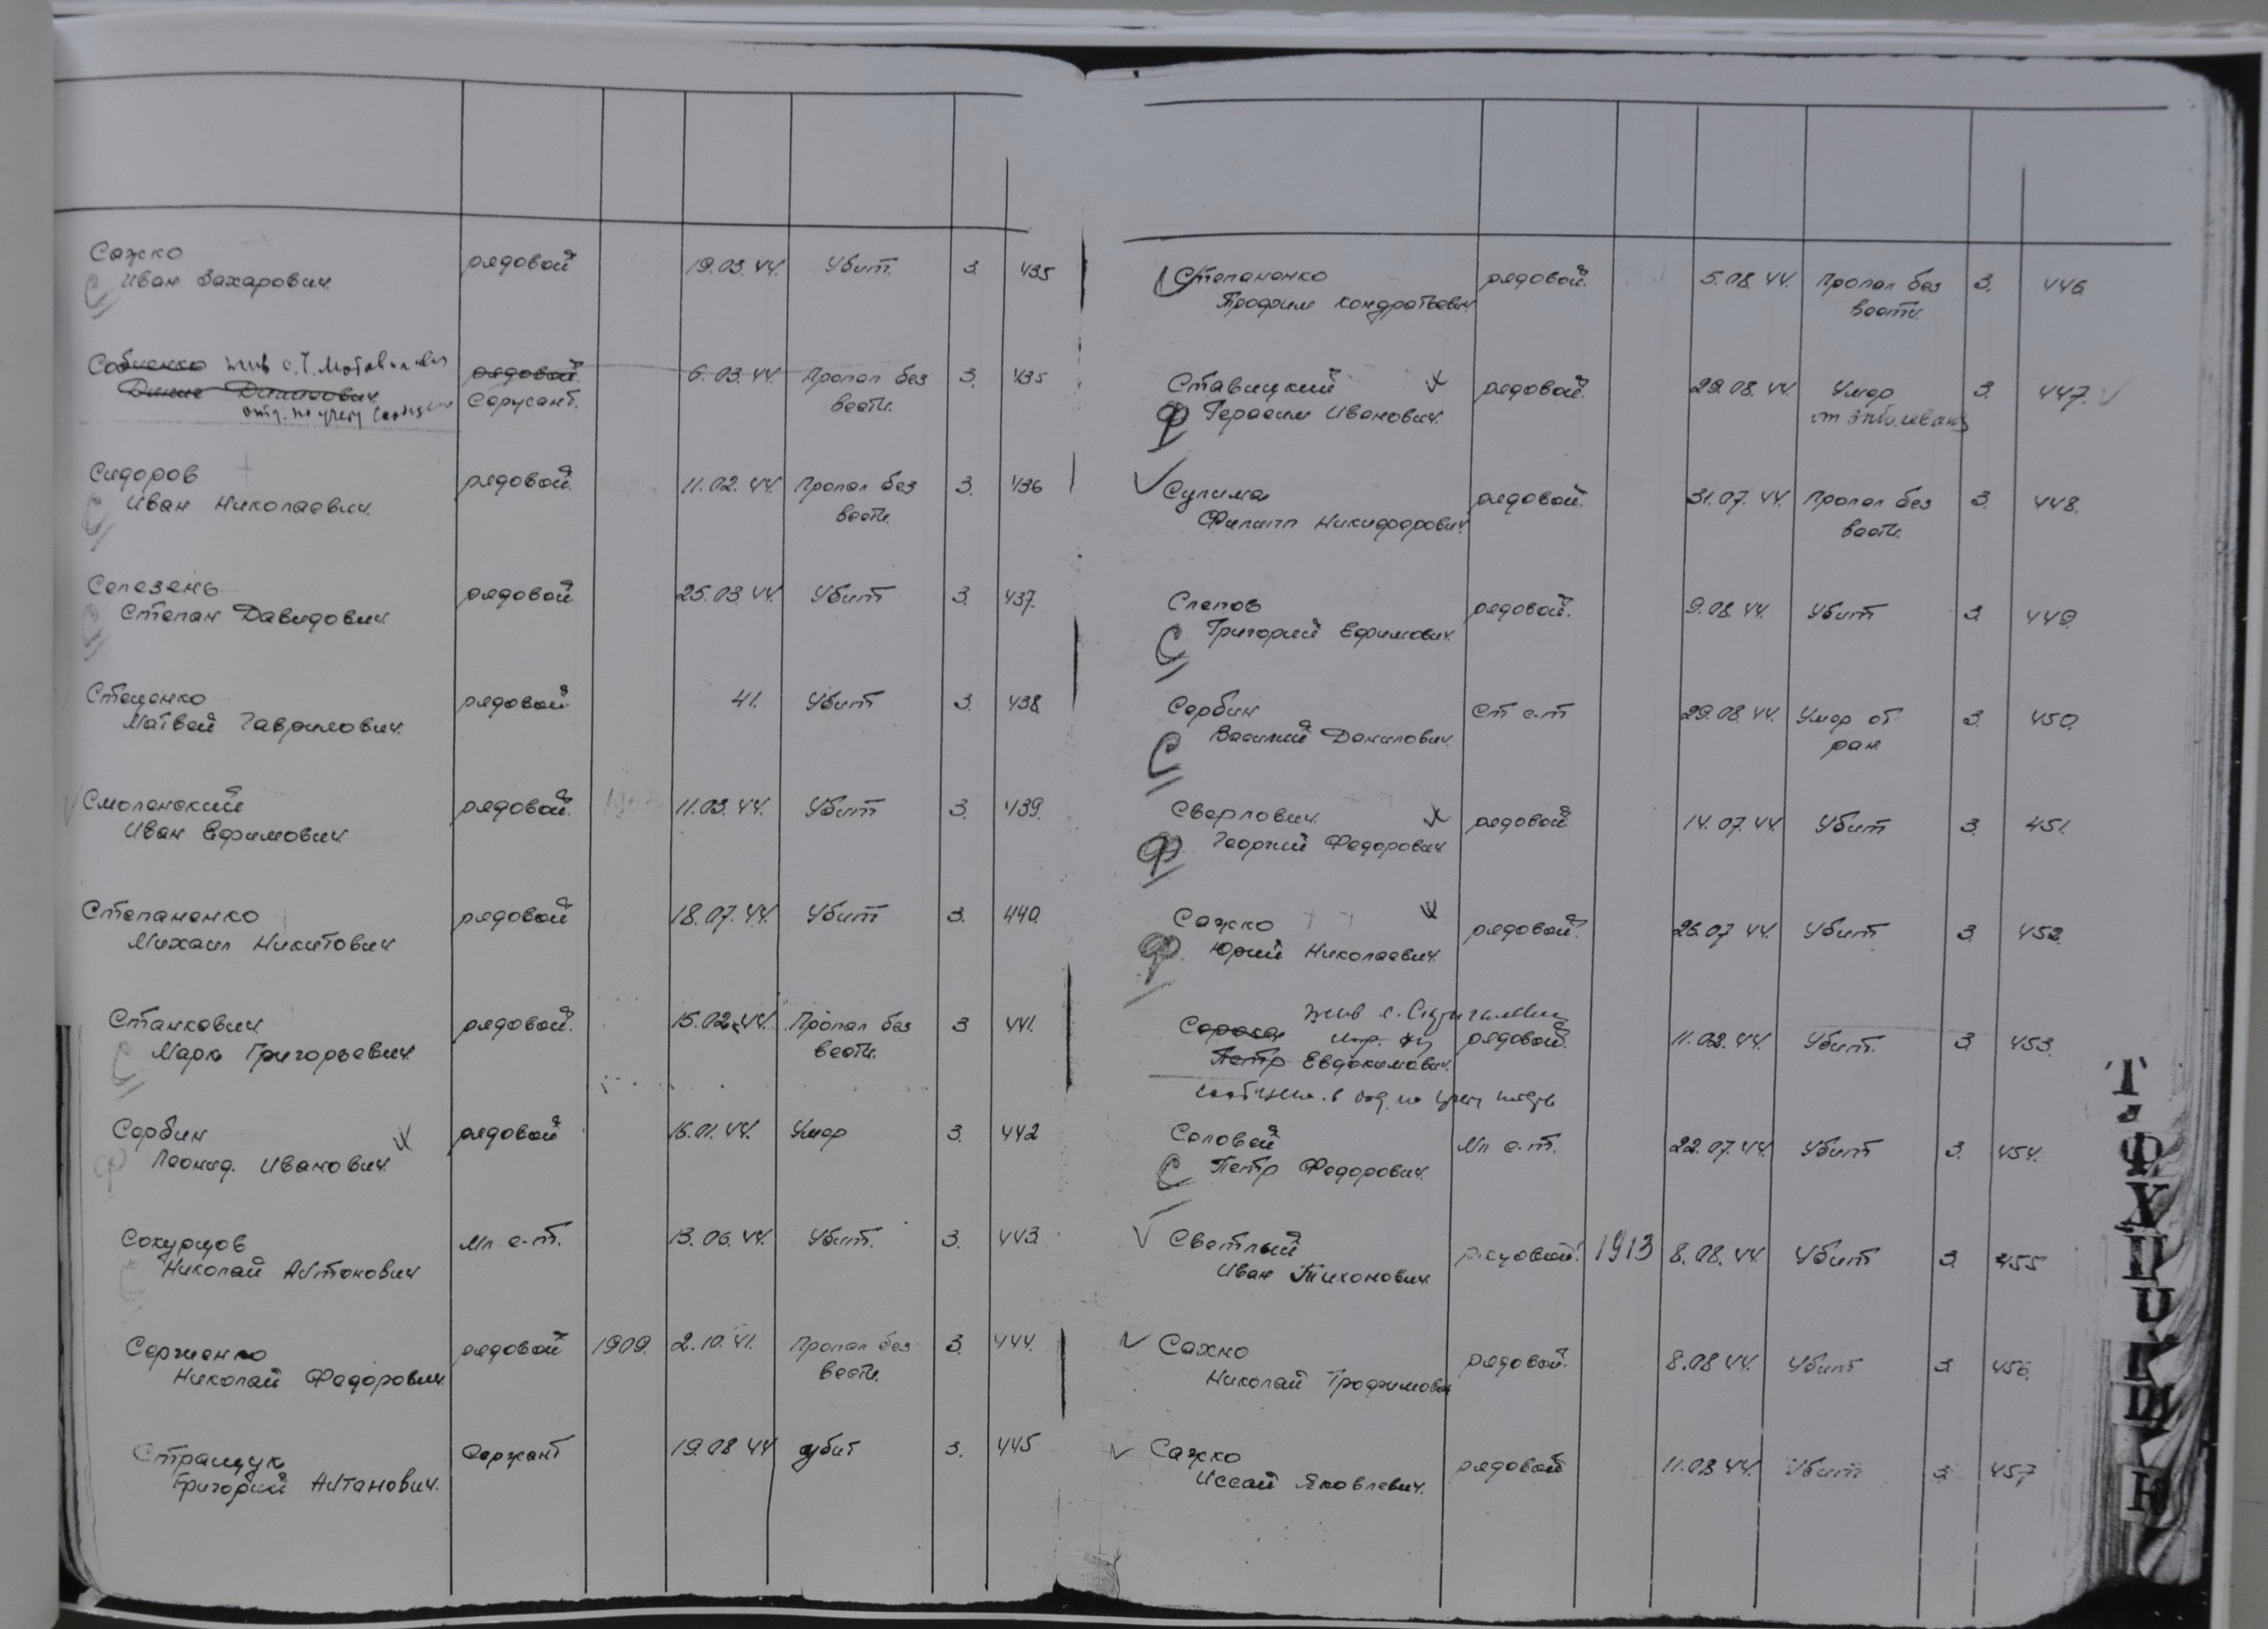 Сажко рядовой 19.03.44. Убит. 3. 435
С Иван Захарович.
Собиенко жив с.Т. рядовой. 6.03.44. Пропал без 3. 435
Данилович Сержант. вести.
Сидоров рядовой. 11.02.44. Пропал без 3. 436
С Иван Николаевич. вести.
Селезень рядовой 25.03.44. Убит 3. 437.
С Степан Давидович
Стеценко рядовой 41. Убит 3. 438
Матвей Гаврилович.
Смоленский рядовой. 11.03.44. Убит 3. 439.
Иван Ефимович.
Степаненко рядовой 18.07.44. Убит 3. 440.
Михаил Никитович
Станкович рядовой. 15.02.44. Пропал без 3 441.
С Марк Григорьевич вести.
Сербин рядовой 16.01.44. Умер 3. 442
Ф Леонид. Иванович.
Сокурцов Мл с-т. 13.06.44. Убит. 3. 443.
С Николай Антонович
Сергиенко рядовой 1909. 2.10.41. Пропал без 3. 444.
Николай Федорович. вести.
Стращук Сержант 19.08 44 убит 3. 445
Григорий Антанович.
Степаненко рядовой. 5.08.44. Пропал без 3. 446
Трофим Кондратьевич вести.
Ставицкий рядовой. 29.08.44. Умер 3. 447.
Ф Герасим Иванович. от
Сулима рядовой 31.07.44. Пропал без 3 448.
Филипп Никифорович. вести.
Слепов рядовой. 9.08.44. Убит 3. 449.
С Григорий Ефимович.
Сербин Ст с-т 29.08.44. Умер от 3. 450.
С Василий Данилович. ран.
Сверлович. рядовой 14.07.44. Убит 3. 451.
Ф Георгий Федорович
Сажко рядовой. 26.07 44. Убит 3. 452.
Ф Юрий Николаевич.
жив с.
Сорока рядовой. 11.02.44. Убит. 3. 453.
Петр Евдокимович.
Соловей Мл с-т. 22.07.44. Убит 3. 454.
С Петр Федорович.
Светлый рядовой. 1913 8.08.44. Убит 3. 455
Иван Тихонович.
Сахно рядовой. 8.08 44. Убит 3 456.
Николай Трофимович
Сажко рядовой 11.03.44. Убит 3 457
Иссай Яковлевич.
Т
Ф
Х